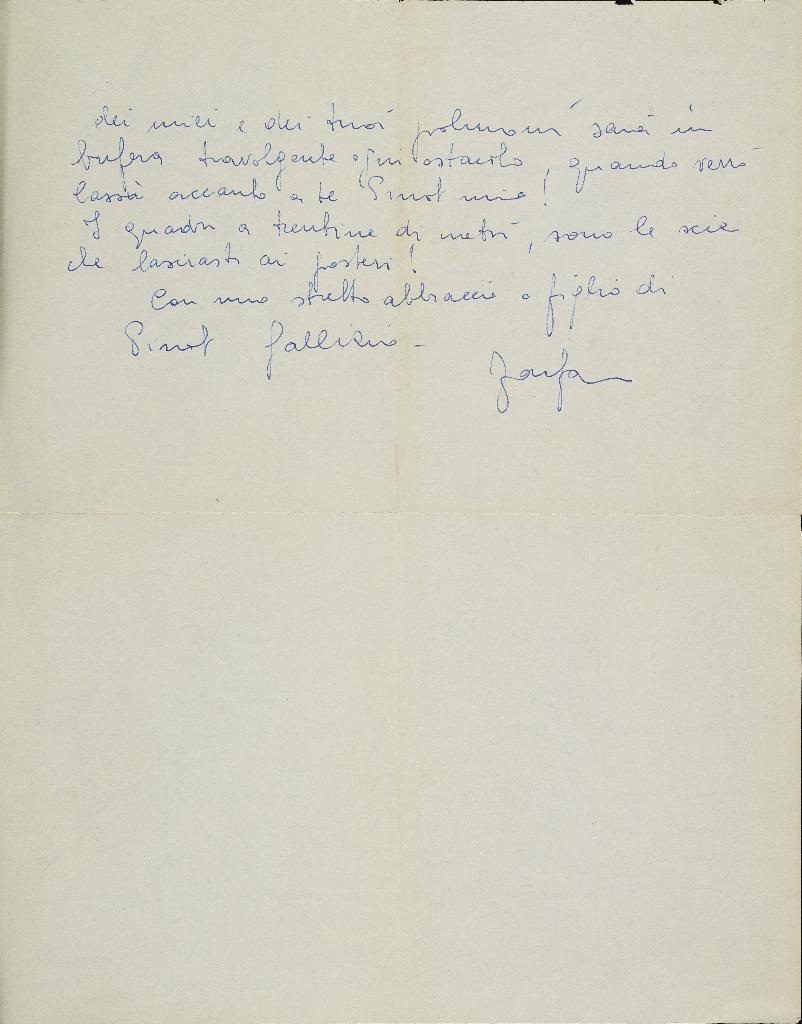 dei miei e dei tuoi polmoni sarà in
bufera travolgente ogni ostacolo, quando verrò
lassù accanto a te Pinot mio!
I quadri a trentine di metri, sono le scie
che lasciasti ai posteri!
Con uno stretto abbraccio o figlio di
Pinot Gallizio -